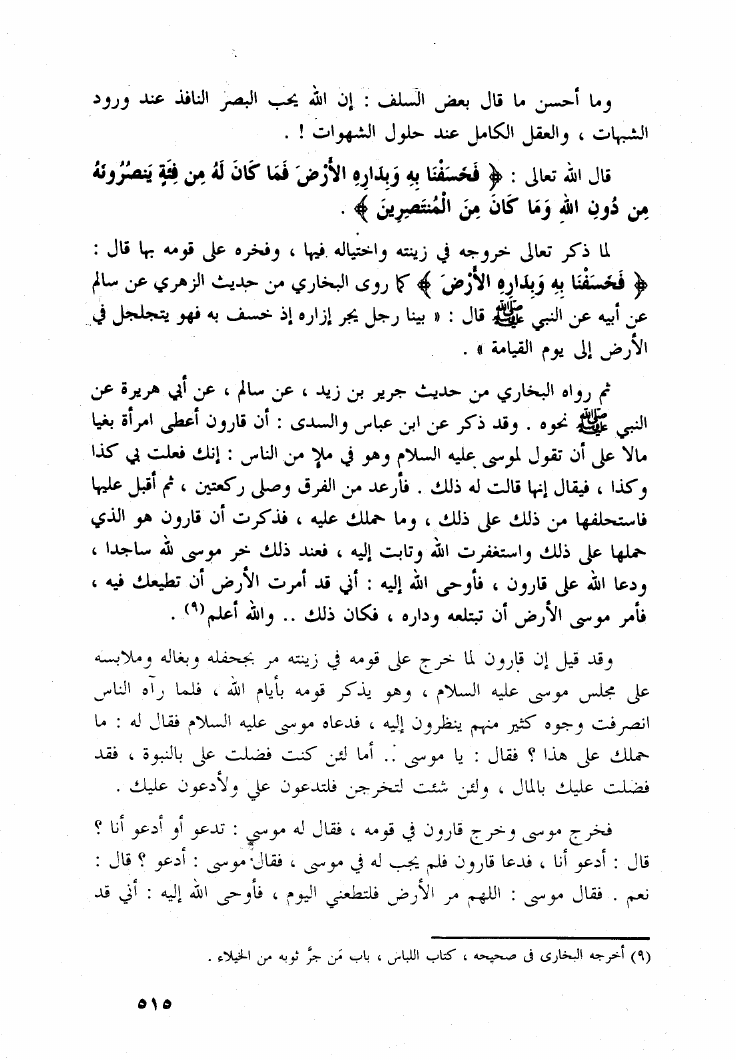 وما أحسن ما قال بعض السلف : إن الله يحب البصر النافذ عند ورود
الشبهات ، والعقل الكامل عند حلول الشهوات ! .
قال الله تعالى : ﴿ فَخَسَفْنَا بِهِ وَبِدَارِهِ الأَرْضَ فَمَا كَانَ لَهُ مِن فِئَةٍ يَنصُرُونَهُ
مِن دُونِ اللهِ وَمَا كَانَ مِنَ الْمُنتَصِرِينَ ﴾ .
لما ذكر تعالى خروجه في زينته واختياله فيها ، وفخره على قومه بها قال :
﴿ فَخَسَفْنَا بِهِ وَبِدَارِهِ الأَرْضَ ﴾ كما روى البخاري من حديث الزهري عن سالم
عن أبيه عن النبي ﷺ قال : « بينا رجل يجر إزاره إذ خسف به فهو يتجلجل في
الأرض إلى يوم القيامة » .
ثم رواه البخاري من حديث جرير بن زيد ، عن سالم ، عن أبي هريرة عن
النبي ﷺ نحوه . وقد ذكر عن ابن عباس والسدى : أن قارون أعطى امرأة بغيا
مالا على أن تقول لموسى عليه السلام وهو في ملإ من الناس : إنك فعلت بي كذا
وكذا ، فيقال إنها قالت له ذلك . فأرعد من الفرق وصلى ركعتين ، ثم أقبل عليها
فاستحلفها من ذلك على ذلك ، وما حملك عليه ، فذكرت أن قارون هو الذي
حملها على ذلك واستغفرت الله وتابت إليه ، فعند ذلك خر موسى لله ساجدا ،
ودعا الله على قارون ، فأوحى الله إليه : أني قد أمرت الأرض أن تطيعك فيه ،
فأمر موسى الأرض أن تبتلعه وداره ، فكان ذلك .. والله أعلم(٩) .
وقد قيل إن قارون لما خرج على قومه في زينته مر بجحفله وبغاله وملابسه
على مجلس موسى عليه السلام ، وهو يذكر قومه بأيام الله ، فلما رآه الناس
انصرفت وجوه كثير منهم ينظرون إليه ، فدعاه موسى عليه السلام فقال له : ما
حملك على هذا ؟ فقال : يا موسى .. أما لئن كنت فضلت على بالنبوة ، فقد
فضلت عليك بالمال ، ولئن شئت لتخرجن فلتدعون علي ولأدعون عليك .
فخرج موسى وخرج قارون في قومه ، فقال له موسى : تدعو أو أدعو أنا ؟
قال : أدعو أنا ، فدعا قارون فلم يجب له في موسى ، فقال موسى : أدعو ؟ قال :
نعم . فقال موسى : اللهم مر الأرض فلتطعني اليوم ، فأوحى الله إليه : أني قد
(٩) أخرجه البخارى فى صحيحه ، كتاب اللباس ، باب مَن جرَّ ثوبه من الخيلاء .
٥١٥